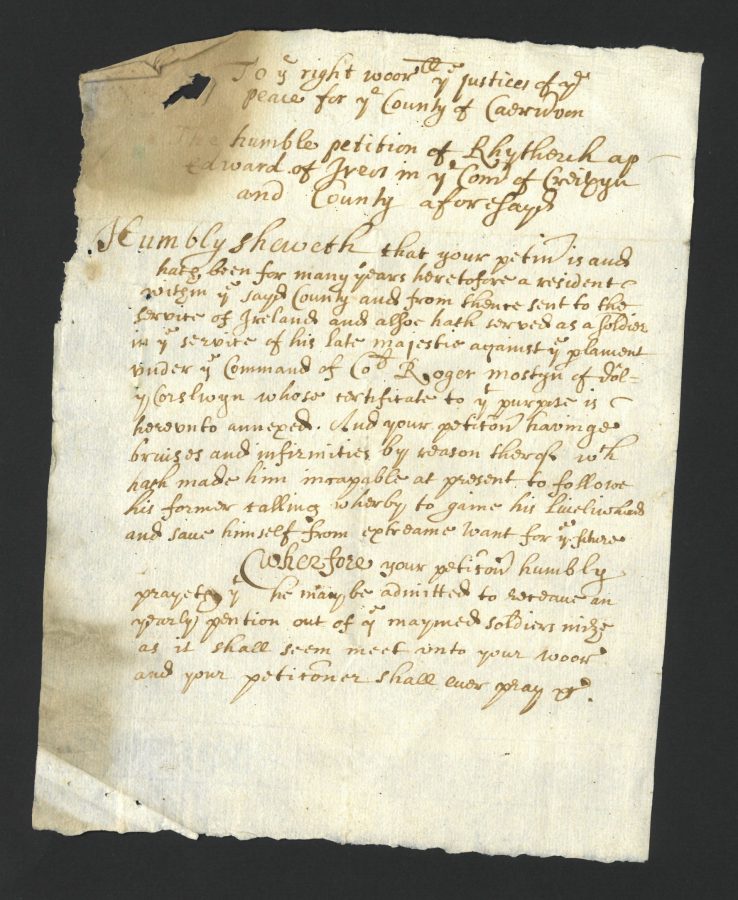 To ye right woorll ye justices of ye
peace for ye County of Caernvon
The humble petition of Rhytherch ap
Edward of in ye Com of Creithyn
and County aforesayd
Humbly sheweth that your petinr is and
hath been for many years heretofore a resident
within ye sayd County and from thence sent to the
service of Ireland and alsoe hath served as a soldier
in ye service of his late majestie against ye plament
under ye Command of Cod Roger mostyn of dol-
y Corslwyn whose certificate to yt purpose is
herevnto annexed. And your peticonr havinge
bruises and infirmities by reason therof wch
hath made him incapable at present to followe
his former calling wherby to gaine his livelihood
and save himself from extreame want for ye future
Wherfore your peticonr humbly
prayeth yt he may be admitted to receave an
yearly pention out of ye maymed soldiers
as it shall seem meet vnto your woorps
and your peticoner shall ever pray &c.